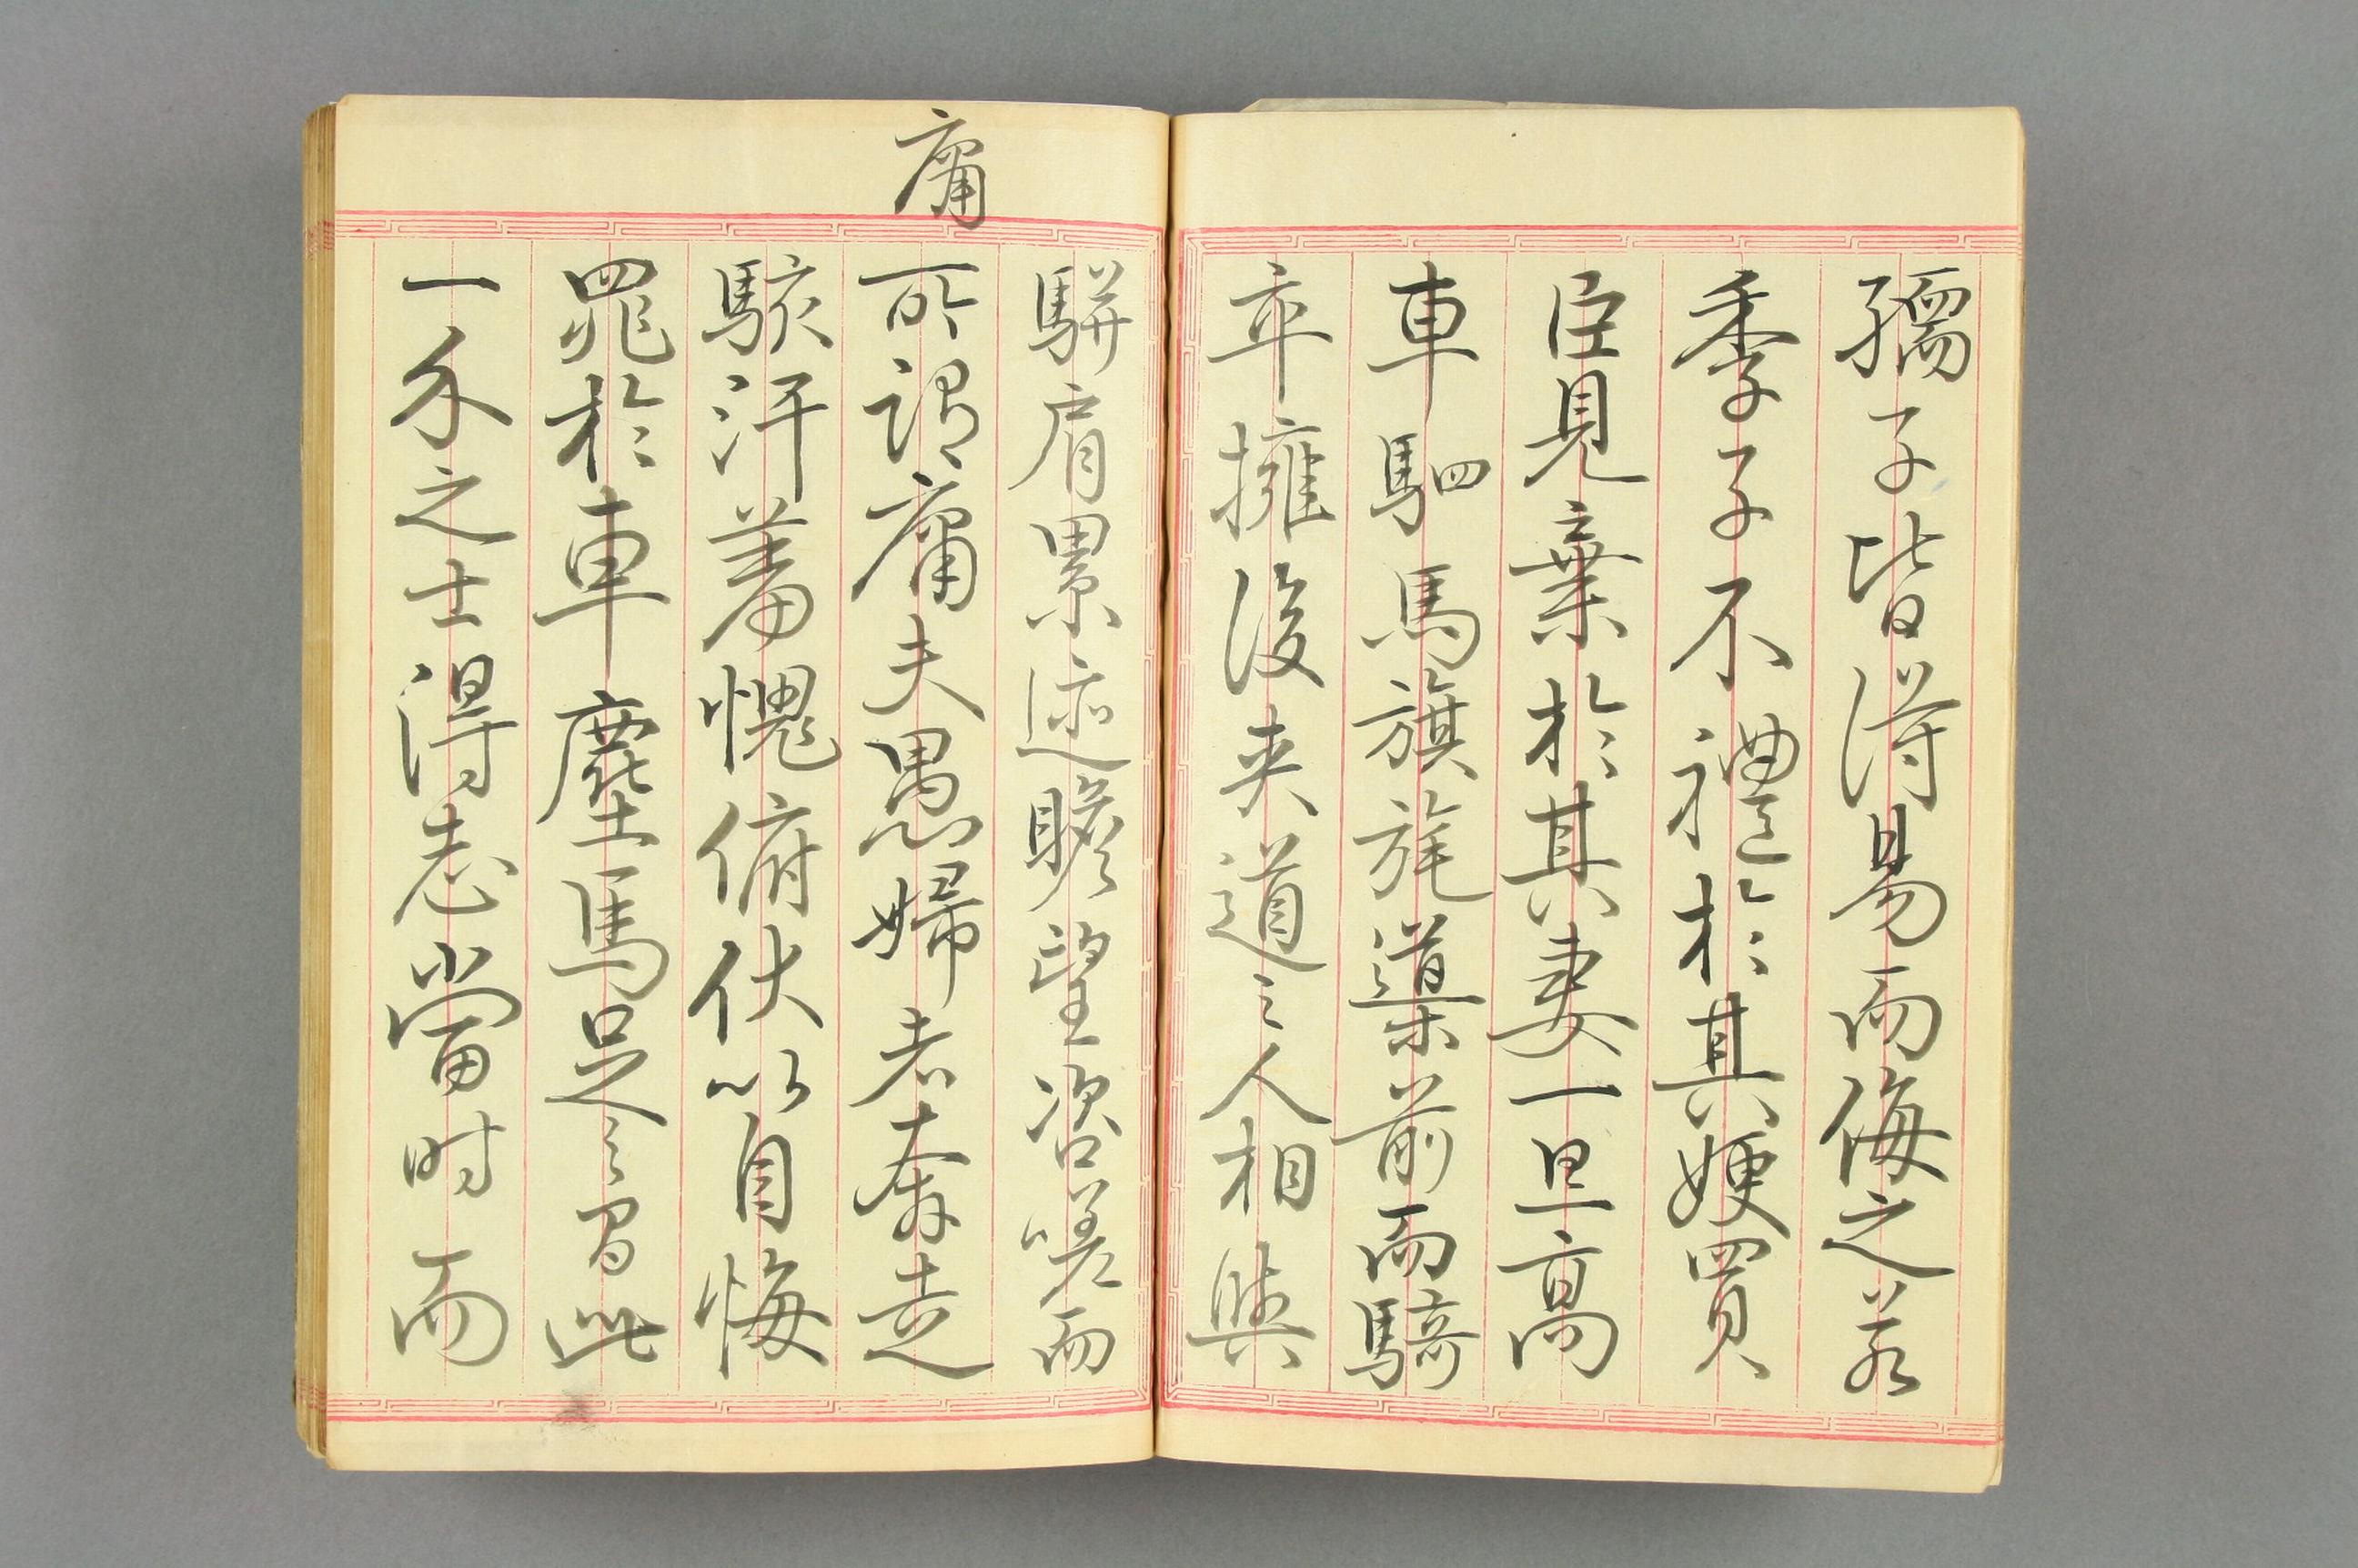 孺子皆得易而侮之若
季子不禮於其嫂買
臣見棄於其妻一旦高
車駟馬旗旄導前而騎
卒擁後夾道之人相與
駢肩累迹瞻望咨嗟而
庸
所謂庸夫愚婦者奔走
駭汗羞愧俯伏以自悔
罪於車塵馬足之間此
一介之士得志當時而